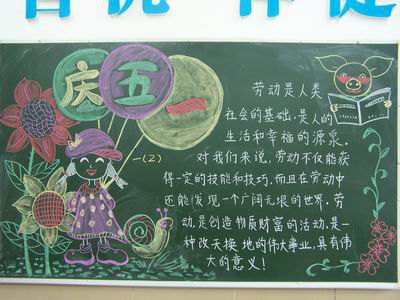 庆五一
一(2)
劳动是人类
社会的基础,是人的
生活和幸福的源泉。
对我们来说,劳动不仅能获
得一定的技能和技巧,而且在劳动中
还能发现一个广阔无垠的世界。劳
动,是创造物质财富的活动,是一
种改天换地的伟大事业,具有伟
大的意义!